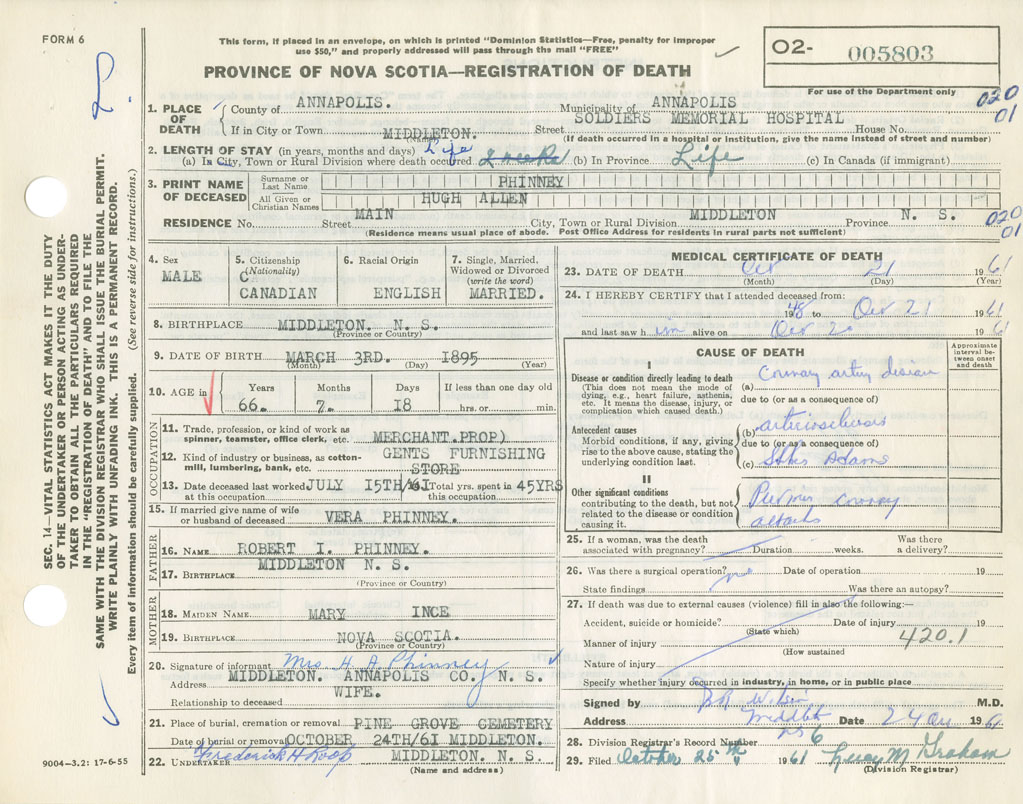 FORM 6
This form, if placed in an envelope, on which is printed "Dominion Statistics—Free, penalty for improper
use $50," and properly addressed will pass through the mail "FREE"
PROVINCE OF NOVA SCOTIA—REGISTRATION OF DEATH
02- 005803
For use of the Department only
020
01
1. PLACE OF DEATH
County of ANNAPOLIS. Municipality of ANNAPOLIS
SOLDIERS MEMORIAL HOSPITAL
If in City or Town MIDDLETON. Street House No.
(Name) (If death occurred in a hospital or institution, give the name instead of street and number)
2. LENGTH OF STAY (in years, months and days) Life
(a) In City, Town or Rural Division where death occurred (b) In Province Life (c) In Canada (if immigrant)
3. PRINT NAME OF DECEASED
Surname or Last Name PHINNEY
All Given or Christian Names HUGH ALLEN
RESIDENCE No. Street MAIN City, Town or Rural Division MIDDLETON Province N. S.
020
01
(Residence means usual place of abode. Post Office Address for residents in rural parts not sufficient)
4. Sex MALE
5. Citizenship (Nationality) C CANADIAN
6. Racial Origin ENGLISH
7. Single, Married, Widowed or Divorced (write the word) MARRIED.
8. BIRTHPLACE MIDDLETON. N. S.
(Province or Country)
9. DATE OF BIRTH MARCH 3RD. 1895
(Month) (Day) (Year)
10. AGE in Years 66. Months 7. Days 18 If less than one day old hrs. or min.
OCCUPATION
11. Trade, profession, or kind of work as
spinner, teamster, office clerk, etc. MERCHANT.PROP)
12. Kind of industry or business, as cotton- GENTS FURNISHING
mill, lumbering, bank, etc. STORE
13. Date deceased last worked JULY 15TH/61 Total yrs. spent in 45YRS
at this occupation this occupation
15. If married give name of wife
or husband of deceased VERA PHINNEY.
FATHER
16. NAME ROBERT I. PHINNEY.
MIDDLETON N. S.
17. BIRTHPLACE
(Province or Country)
MOTHER
18. MAIDEN NAME MARY INCE
19. BIRTHPLACE NOVA SCOTIA.
(Province or Country)
20. Signature of informant Mrs H. A. Phinney
Address MIDDLETON. ANNAPOLIS CO. N. S.
Relationship to deceased WIFE.
21. Place of burial, cremation or removal PINE GROVE CEMETERY
Date of burial or removal OCTOBER 24TH/61 MIDDLETON.
22. UNDERTAKER Frederick H Roop MIDDLETON. N. S.
(Name and address)
MEDICAL CERTIFICATE OF DEATH
23. DATE OF DEATH Oct 21 1961
(Month) (Day) (Year)
24. I HEREBY CERTIFY that I attended deceased from:
1948 to Oct 21 1961
and last saw him alive on Oct 2 1961
CAUSE OF DEATH
Approximate interval between onset and death
I
Disease or condition directly leading to death
(This does not mean the mode of
dying, e.g., heart failure, asthenia,
etc. It means the disease, injury, or
complication which caused death.)
(a) Coronary artery disease
due to (or as a consequence of)
Antecedent causes
Morbid conditions, if any, giving
rise to the above cause, stating the
underlying condition last.
(b) arteriosclerosis
due to (or as a consequence of)
(c) Stokes Adams
II
Other significant conditions
contributing to the death, but not
related to the disease or condition
causing it.
Previous coronary
attacks
25. If a woman, was the death Was there
associated with pregnancy? Duration weeks. a delivery?
26. Was there a surgical operation? no Date of operation 19
State findings Was there an autopsy?
27. If death was due to external causes (violence) fill in also the following:—
Accident, suicide or homicide? Date of injury 19
(State which)
Manner of injury 420.1
(How sustained
Nature of injury
Specify whether injury occurred in industry, in home, or in public place
Signed by M.D.
Address Date 24 1961
28. Division Registrar's Record Number 6
29. Filed October 25 1961 M Graham
(Division Registrar)
SEC. 14—VITAL STATISTICS ACT MAKES IT THE DUTY
OF THE UNDERTAKER OR PERSON ACTING AS UNDER-
TAKER TO OBTAIN ALL THE PARTICULARS REQUIRED
IN THE "REGISTRATION OF DEATH" AND TO FILE THE
SAME WITH THE DIVISION REGISTRAR WHO SHALL ISSUE THE BURIAL PERMIT.
WRITE PLAINLY WITH UNFADING INK. THIS IS A PERMANENT RECORD.
Every item of information should be carefully supplied. (See reverse side for instructions.)
9004-3.2: 17-6-55